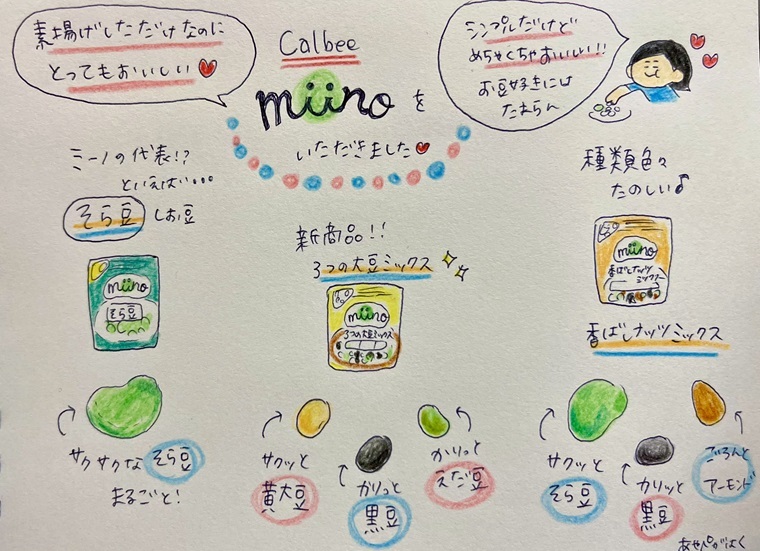 素揚げしただけなのに
とってもおいしい
Calbee
miino を
いただきました
シンプルだけど
めちゃくちゃおいしい!!
お豆好きには
たまらん
ミーノの代表!?
といえば…
そら豆 しお豆
miino
そら豆
サクサクなそら豆
まるごと!
新商品!!
3つの大豆ミックス
miino
3つの大豆ミックス
サクッと
黄大豆
かりっと
黒豆
かりっと
えだ豆
種類色々
たのしい♪
miino
香ばしナッツ
ミックス
香ばしナッツミックス
サクッと
そら豆
カリッと
黒豆
ごろんと
アーモンド